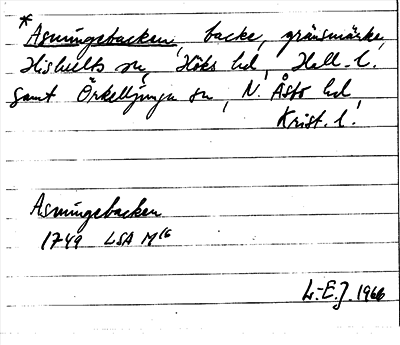 *Asmungebacken, backe, gränsmärke,
Hishults sn, Höks hd, Hall. l.
samt Örkelljunga sn, N. Åsbo hd,
Krist. l.
Asmungebacken
1749 LSA M16
L.-E.J. 1966